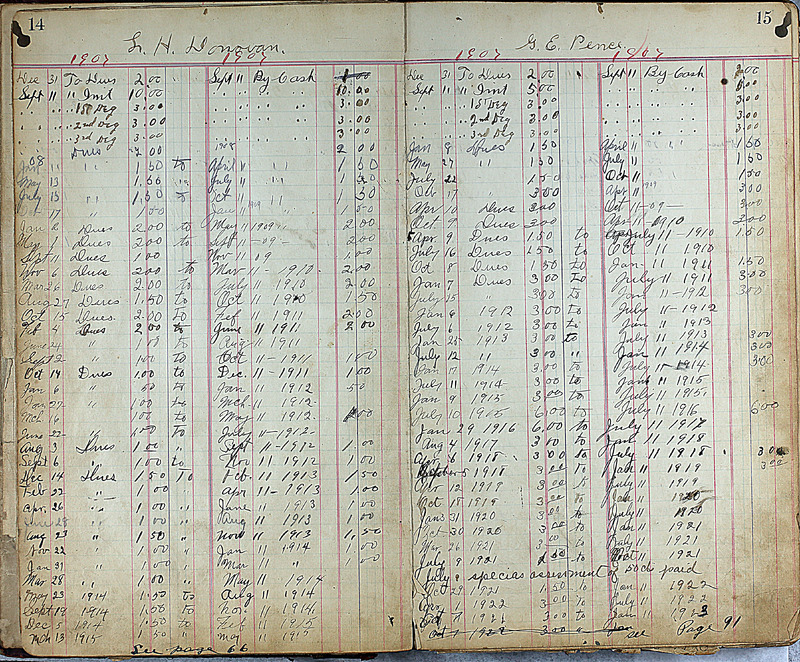 14
L. H. Donovan.
1907 1907
Dec 31 To Dues 2.00 Sept 11 By Cash 1.00
Sept 11 " Imt 10.00 " " " 10.00
" " " 1st Deg 3.00 " " " 3.00
" " " 2nd Deg 3.00 " " " 3.00
" " " 3rd Deg 3.00 " " " 3.00
Dues 2.00 1908 2 00
68
11 " 1 50 to April 11 " " 1 50
May 13 " 1.50 " July 11 " " 1 50
July 13 " 1.50 to Oct 11 " " 1 50
Oct 17 " 1 50 Jan 11 1909 1 50
Jan 8 Dues 2.00 to May 11 1909 2 00
May 1 Dues 2.00 to Sept 11 -09- 2.00
Sept 11 Dues 1 00 Nov 11 09 1.00
Nov 6 Dues 2.00 to Mar 11 - 1910 2.00
Mar 26 Dues 2.00 to July 11 1910 2.00
Aug 27 Dues 1.50 to Oct 11 1910 1 50
Oct 15 Dues 2.00 to Feb 11 1911 2 00
Feb 4 Dues 2 00 to June 11 1911 2 00
June 24 1 00 to Aug 11 1911
Sept 2 " 1 00 to Oct 11 - 1911 1 00
Oct 14 Dues 1.00 to Dec. 11 - 1911 1 00
Jan 6 " 50 to Jan 11 1912 50
Jan 27 " 1 00 to Mch 11 1912
Mch 16 1 00 to May 11 1912. 1 00
June 22 - " to July 11 - 1912
Aug 3 Dues 1 00 " Sept 11 - 1912 1 00
Sept 6 " 1.00 to Nov 11 1912 1.00
Dec 14 Dues 1 50 To Feb 11 1913 1 50
Feb 22 " 1 00 " Apr 11 - 1913 1.00
Apr 26 " 1 00 " June 11 1913 1 00
June 28 " 1 00 " Aug 11 1913 1 00
Aug 23 " 1 50 " Nov 11 1913 1.50
Nov 22 " 1 00 " Jan 11 1914 1 00
Jan 31 " 1 00 " Mar 11 " 1 00
Mar 28 " 1 00 " May 11 1914
May 23 1914 1.50 to Aug 11 1914
Sept 19 1914 1.50 to Nov. 11 1914
Dec 5 1914 1 50 to Feb 11 1915
Mch 13 1915 1 50 " May 11 1915
See page 66
15
G. E. Pence.
1907 1907
Dec 31 To Dues 2.00 Sept 11 By Cash 2 00
Sept 11 " Imt 5.00 " " " 5.00
" " " 1st Deg 3.00 " " " 3.00
" " " 2nd Deg 3.00 " " " 3.00
" " " 3rd Deg 3.00 " " " 3.00
Jan 8 Dues 1 50 April 11 " 1 50
May 27 " 1 50 July 11 " 1 50
July 22 1 50 Oct 11 " 1 50
Oct 17 " 3 00 Apr 11 1909 3 00
Apr 10 Dues 3 00 Oct 11 - 09 - 3 00
Oct 9 Dues 3.00 Apr 11 - 0910 3 00
Apr. 9 Dues 1.50 to July 11 - 1910 1 50
July 16 Dues 1 50 to Oct 11 1910
Oct 8 Dues 1 50 to Jan 11 1911 1.50
Jan 7 Dues 3 00 to July 11 1911 3 00
July 15 " 3 00 to Jan 11 - 1912 3 00
Jan 6 1912 3 00 to July 11 - 1912
July 6 1912 3 00 to Jan 11 1913
Jan 25 1913 3 00 to July 11 1913 3 00
July 12 " 3 00 " Jan 11 1914 3 00
Jan 17 1914 3 00 to July 11 1914 3 00
July 11 1914 3 00 to Jan 11 1915
Jan 9 1915 3 00 to July 11 1915
July 10 1915 6.00 to July 11 1916 6 00
Jan 29 1916 6.00 to July 11 1917
Aug 4 1917 3 00 to Jan 11 1918
Apr 6 1918 3 00 to July 11 1918 3 00
October 5 1918 3 00 to Jan 11 1919 3 00
1919 3 00 to July 11 1919
Oct 18 1919 3 00 to Jan 11 1920
Jan 31 1920 3 00 to July 11 1920
Oct 30 1920 3 00 " Jan 11 1921
Mar 26 1921 3 00 " July 11 1921
July 9 1921 1 50 to Oct 11 1921
July " special assessment of 50c paid
Oct 29 1921 1.50 to Jan 11 1922
1 1922 3 00 to July 11 1922
1921 3 00 to Jan 11 1923
Oct 7 1922 3.00 " Jan
see Page 91